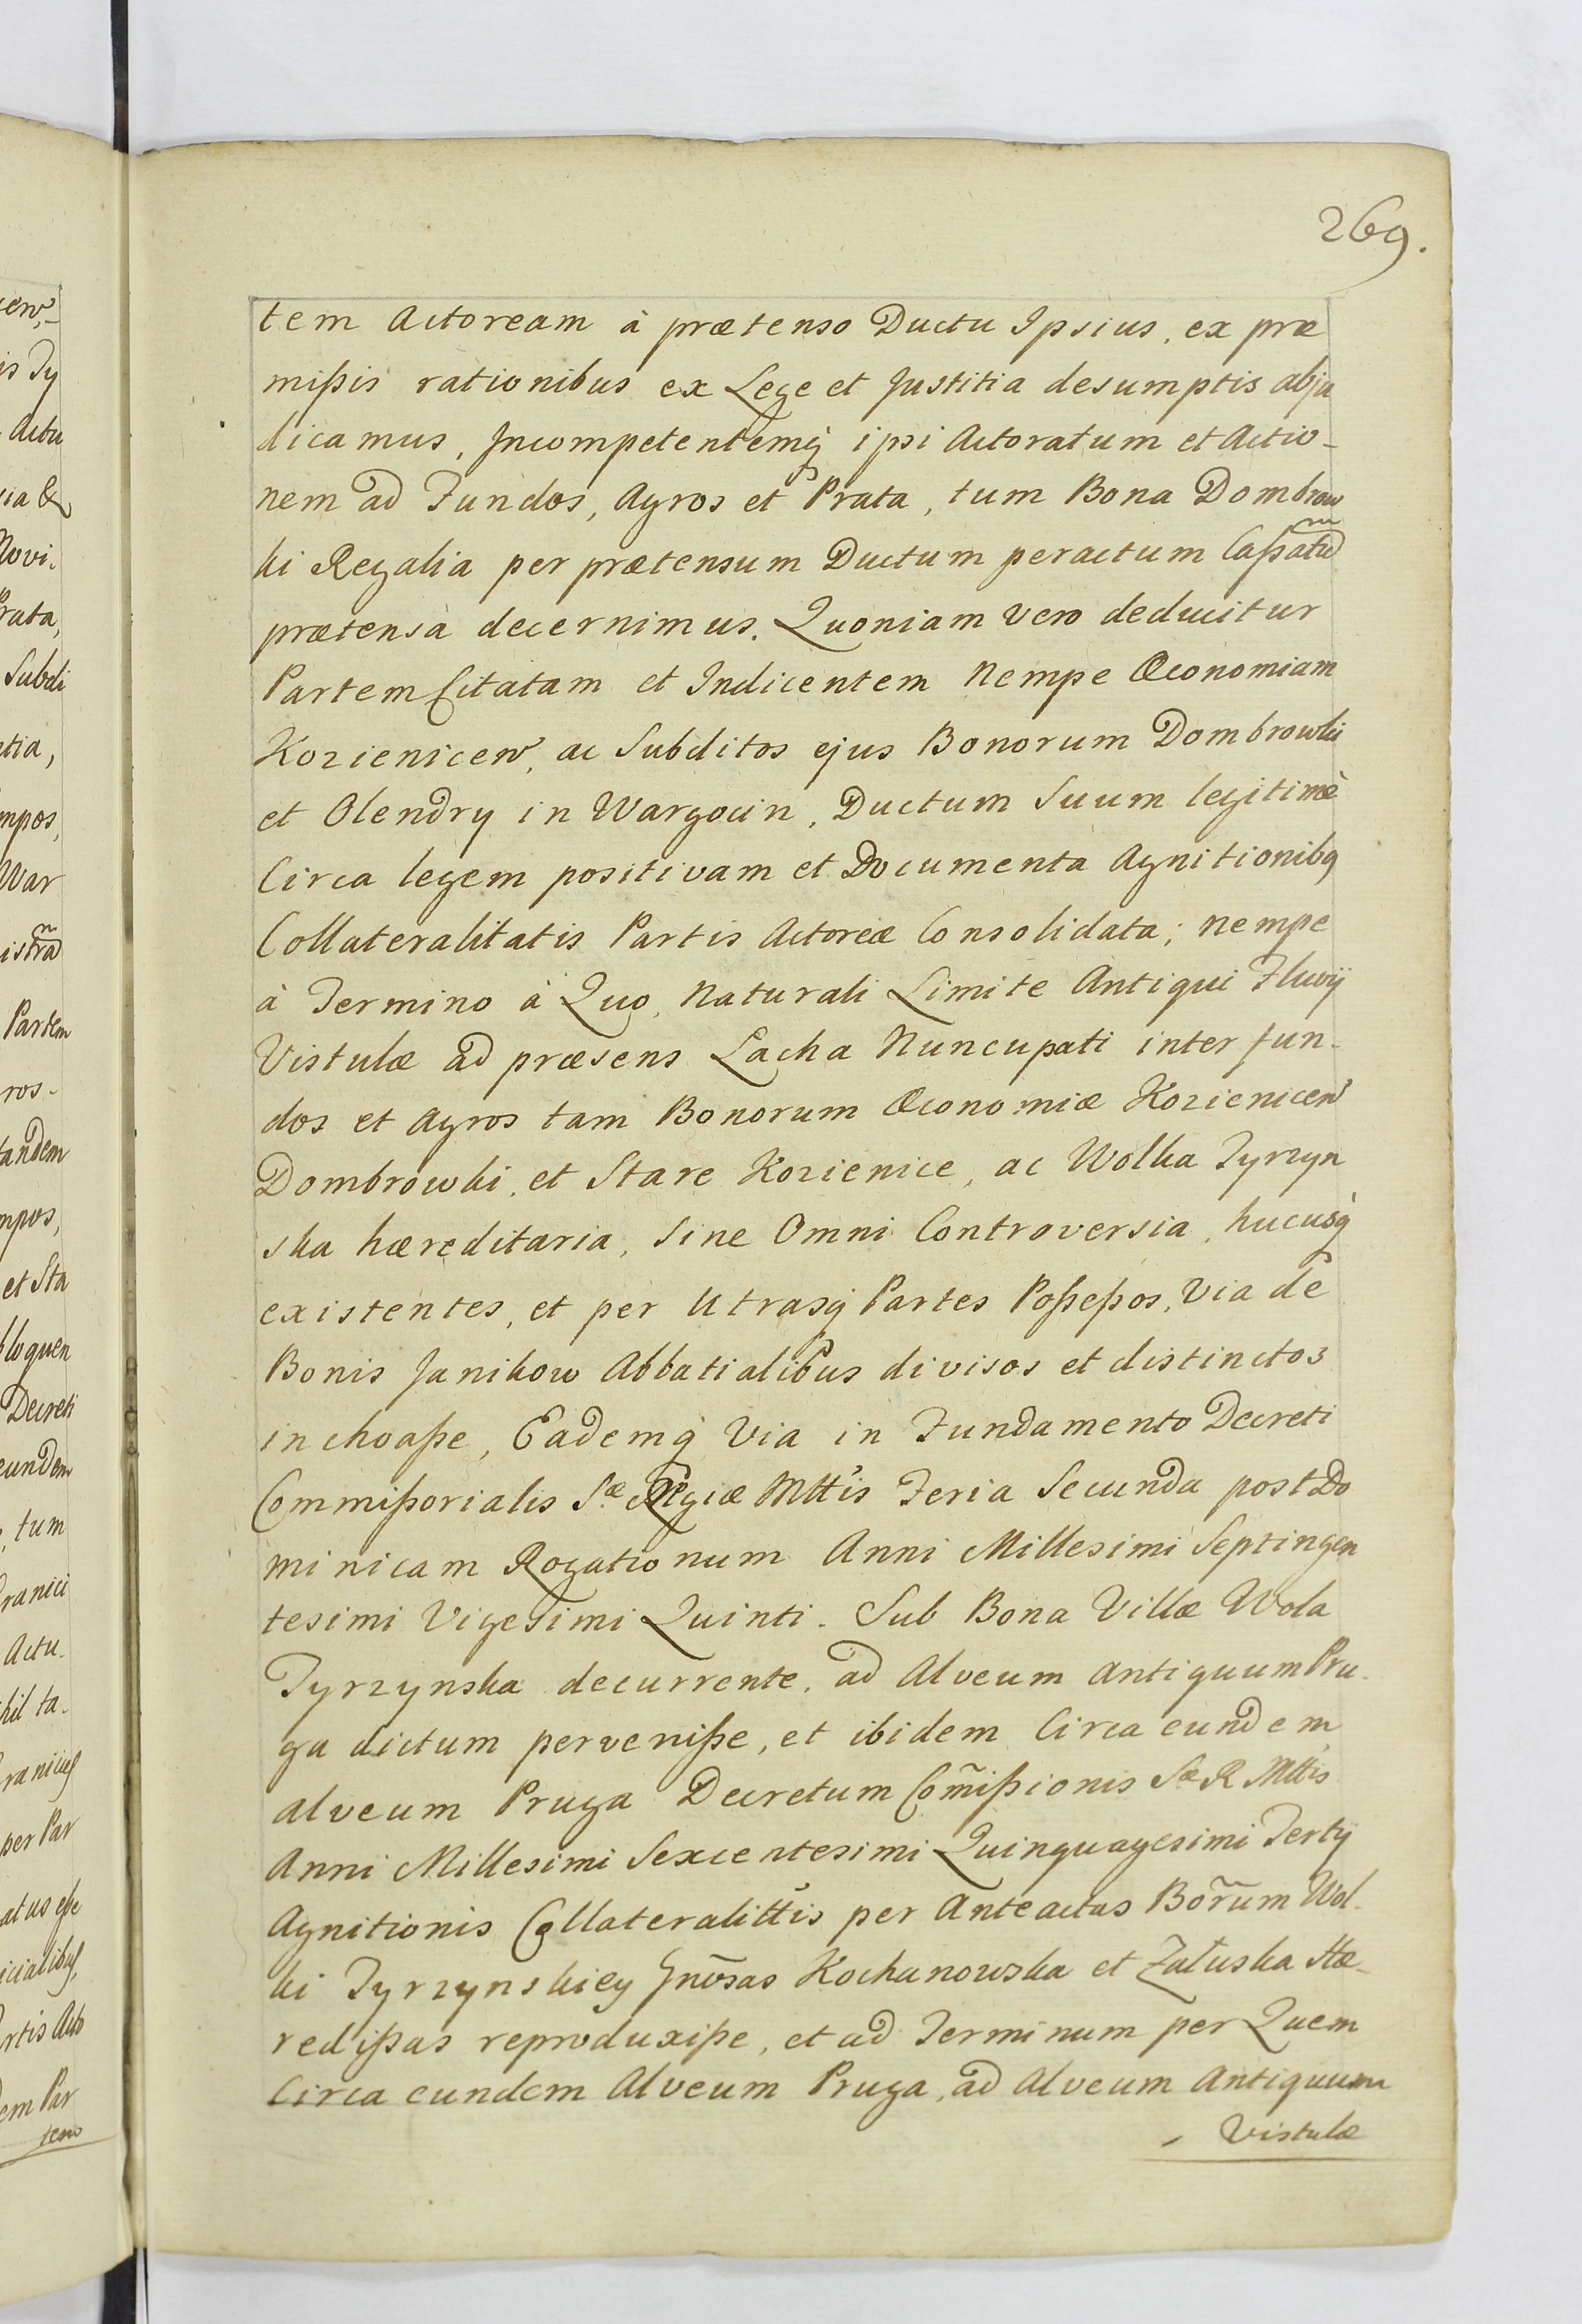 269.
tem Actoream à prætenso Ductu Ipsius, ex præ
mißis rationibus ex Lege et Justitia desumptis abju
dicamus, Incompetentemq́ ipsi Actoratum et Actio-
nem ad Fundos, Agros et Prata, tum Bona Dombrow
ki Regalia per prætensum Ductum peractum Caßatũ
prætensà decernimus. Quoniam vero deducitur
Partem Citatam et Indicentem nempe Œconomiam
Kozienicen̉, ac Subditos ejus Bonorum Dombrowki
et Olendry in Wargocin, Ductum Suum legitimè
Circa legem positivam et Documenta Agnitionibꝯ
Collateralitatis Partis Actoreæ Consolidata; nempe
à Termino à Quo, Naturali Limite Antiqui Fluvij
Vistulæ ad præsens Lacha Nuncupati inter fun-
dos et Agros tam Bonorum Œconomiæ Kozienicen̉
Dombrowki, et Stare Kozienice, ac Wolka Tyrzyn
ska hæreditaria, Sine Omni Controversia, hucusq́
existentes, et per Utrasq́ Partes Poßeßos, Via de
Bonis Janikow Abbatialibus divisos et distinctos
inchoaße, Eademq́ Via in Fundamento Decreti
Commißorialis S.æ Rgiæ Mtt̉is Feria Secunda post Do
minicam Rogationum Anni Millesimi Septingen
tesimi Vigesimi Quinti. Sub Bona Villæ Wola
Tyrzynska decurrente, ad Alveum antiquum Pru-
ga dictum perveniße, et ibidem Circa eundem
alveum Pruga Decretum Com̃ißionis Sæ R Mtt̉is
Anni Millesimi Sexcentesimi Quinquagesimi Tertij
Agnitionis Collateralitt̉is per Anteactas Bor̃um Wol-
ki Tyrzynskiey Gnõsas Kochanowska et Załuska Hæ-
redißas reproduxiße, et ad Terminum per Quem
Circa eundem Alveum Pruga, ad Alveum Antiquum
Vistulæ